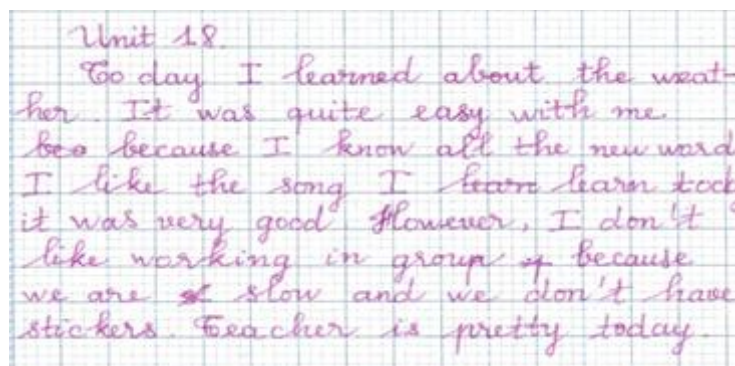 Unit 18.
To day I learned about the weat-
her. It was quite easy with me
because I know all the new word
I like the song I learn tod
it was very good However, I don't
like working in group because
we are slow and we don't have
stickers. Teacher is pretty today.